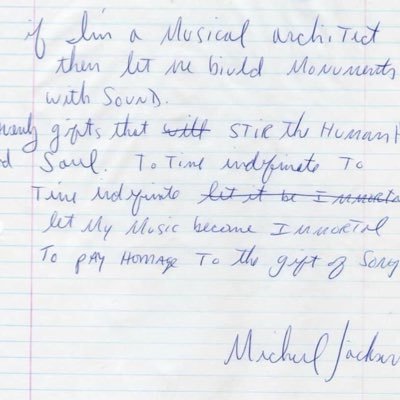 if I'm a Musical architect
then let me biuld Monuments
with Sound.
gifts that will STIR the Human
Soul. To Time indefinate To
Time indefinite let it be Immorta
let My Music become Immortal
To pay Homage To the gift of Song
Michael Jackson